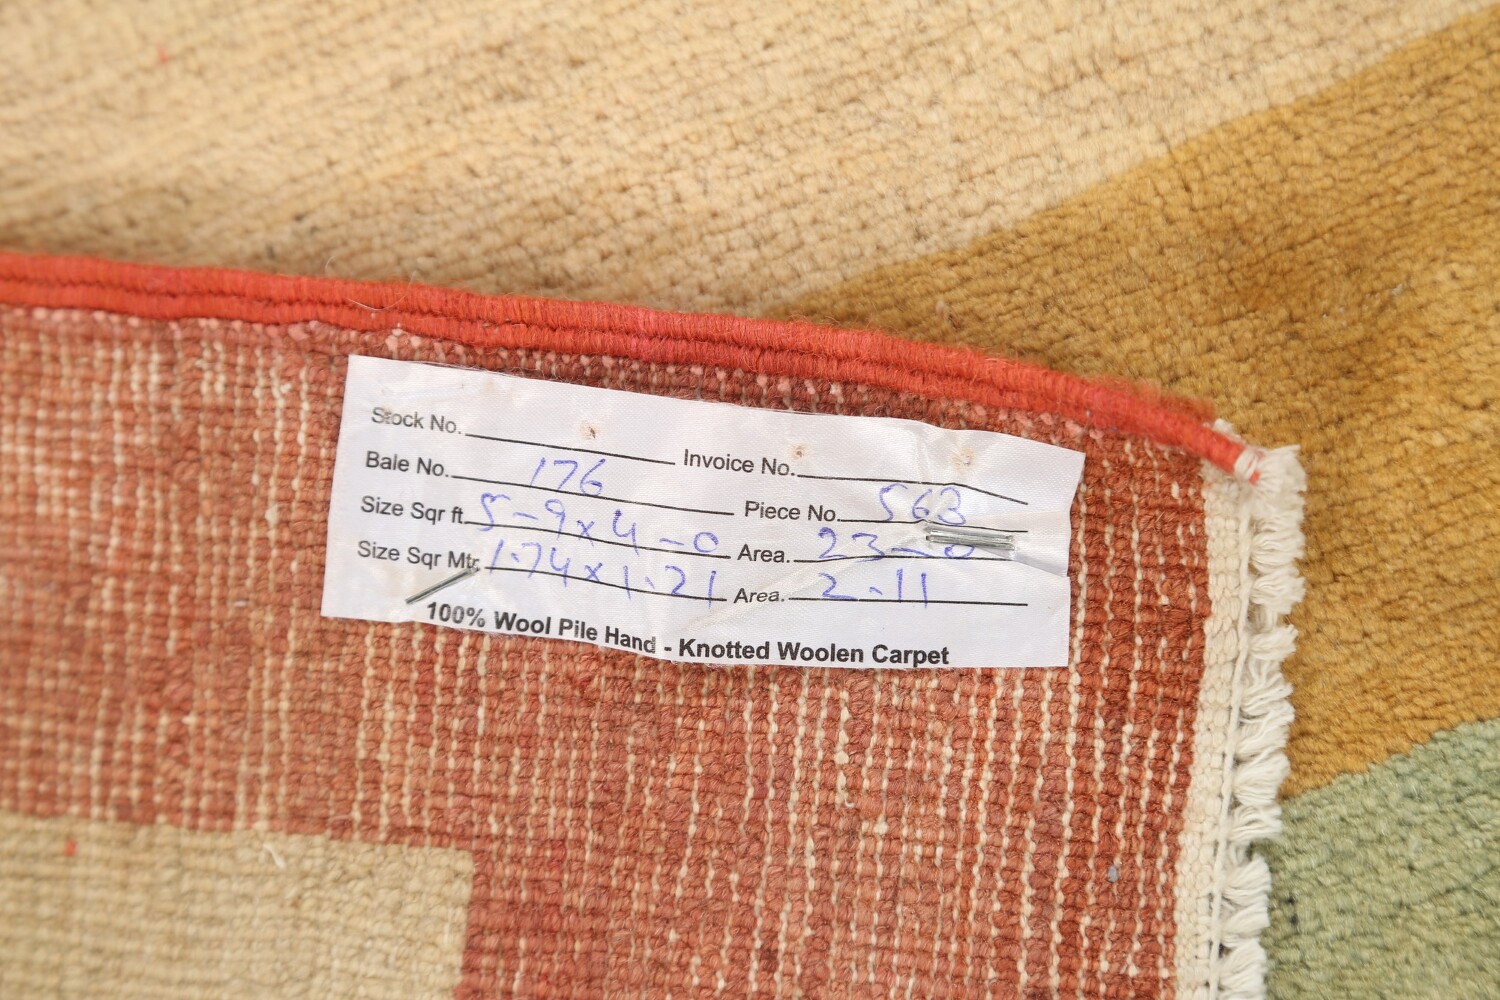 Stock No. Invoice No.
Bale No. 176 Piece No. 563
Size Sqr ft. 5-9x4-0 Area. 23-0
Size Sqr Mtr. 1.74x1.21 Area. 2.11
100% Wool Pile Hand - Knotted Woolen Carpet